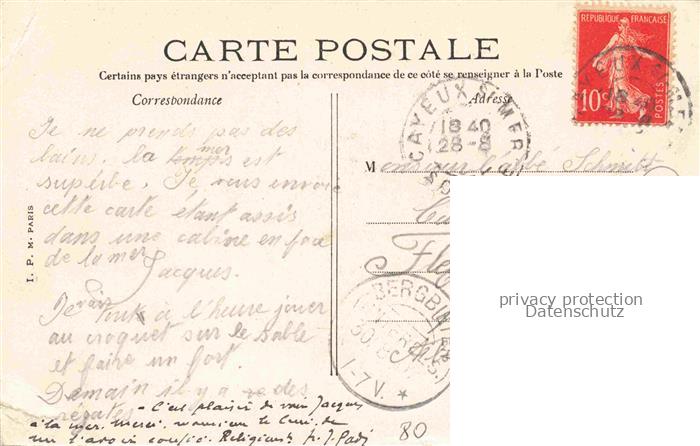 CARTE POSTALE
Certains pays étrangers n'acceptant pas la correspondance de ce côté se renseigner à la Poste
Correspondance
Adresse
REPUBLIQUE FRANÇAISE
POSTES
10c
CAYEUX S/MER
18 40
28-8
Je ne prends pas des
bains. la mer est
superbe. Je vous envoie
cette carte étant assis
dans une cabine en face
de la mer
Jacques.
Je vais tout à l'heure jouer
au croquet sur le sable
et faire un fort.
Demain il y a des
régates
- C'est plaisir de voir Jacques
à la mer. Merci, monsieur le Curé, de
Monsieur l'abbé Schmidt
BERGB
1-7 V.
I. P. M. PARIS
80
privacy protection
Datenschutz